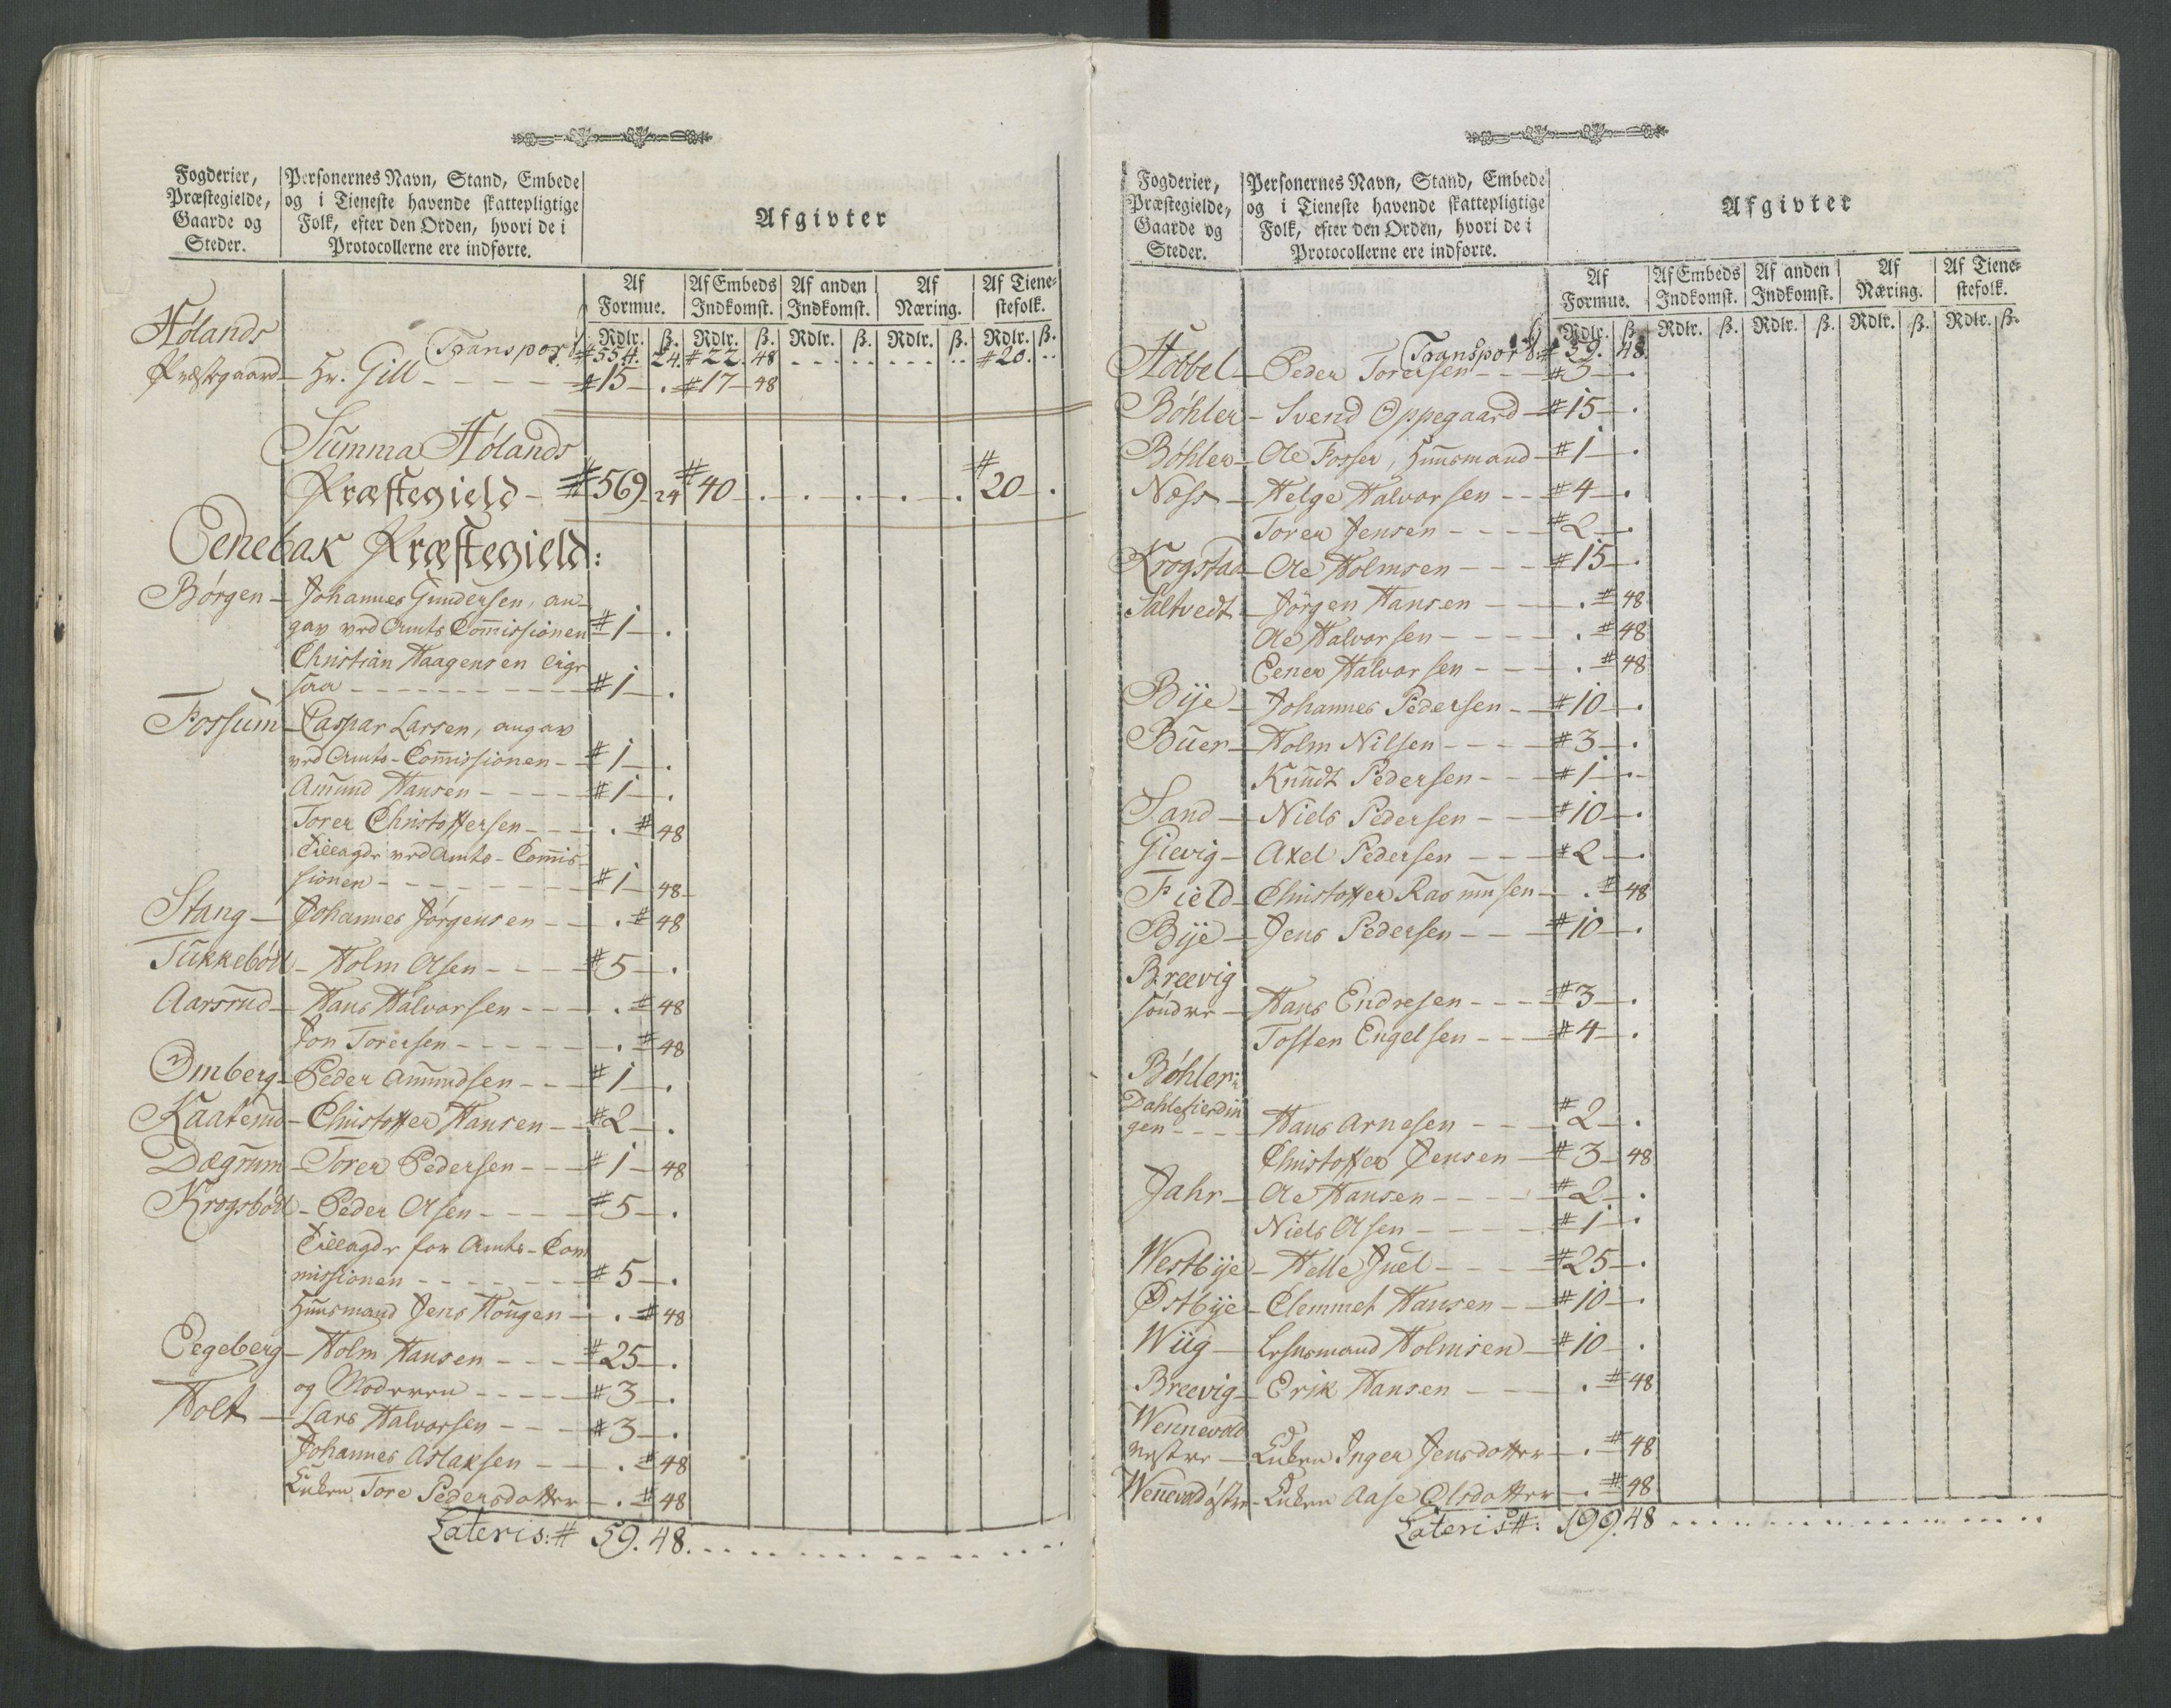 Fogderier, Præstegielde, Gaarde og Steder.
Personernes Navn, Stand, Embede og i Tieneste havende skattepligtige Folk, efter den Orden, hvori de i Protocollerne ere indførte.
Afgivter
Af Formue. Af Embeds Indkomst. Af anden Indkomst. Af Næring. Af Tienestefolk.
Rdlr. ß. Rdlr. ß. Rdlr. ß. Rdlr. ß. Rdlr. ß.
Hølands
Transport # 554. 24. # 22. 48 # 20.
Præstegaard - Hr. Gill - # 15 - . # 17 - 48
Summa Hølands
Præstegield - # 569. 24 # 40 - . # 20 - .
Eenebak Præstegield:
Børgen - Johannes Gundersen, an-
gav ved Amts Com̅issionen # 1 - .
Christian Haagensen ligesaa - # 1 - .
Fossum - Caspar Larsen, angav
ved Amts-Com̅issionen - # 1 - .
Amund Hansen - # 1 - .
Torer Christoffersen - . # 48
Tillagde ved Amts-Com̅is-
sionen - # 1 - 48
Stang - Johannes Jörgensen - . # 48
Tukkebøll - Holm Olsen - # 5 - .
Aarsrud - Hans Halvorsen - . # 48
Jon Torersen - . # 48
Omberg - Peder Amundsen - # 1 - .
Kaaterud - Christoffer Hansen - # 2 - .
Dægrum - Torer Pedersen - # 1 - 48
Krogsbøll - Peder Olsen - # 5 - .
Tillagde for Amts-Com
missionen - # 5 - .
Huusmand Jens Hougen - . # 48
Eegeberg - Holm Hansen - # 25 - .
og Moderen - # 3 - .
Holt - Lars Halvorsen - # 3 - .
Johannes Aslaksen - . # 48
Enken Tore Pedersdotter - . # 48
Lateris: # 59. 48.
Fogderier, Præstegielde, Gaarde og Steder.
Personernes Navn, Stand, Embede og i Tieneste havende skattepligtige Folk, efter den Orden, hvori de i Protocollerne ere indførte.
Afgivter
Af Formue. Af Embeds Indkomst. Af anden Indkomst. Af Næring. Af Tienestefolk.
Rdlr. ß. Rdlr. ß. Rdlr. ß. Rdlr. ß. Rdlr. ß.
Transport # 59. 48.
Hobbel - Peder Torersen - # 3 - .
Bøhler - Svend Oppegaard - # 15 - .
Bøhler - Ole Fosser, Huusmand - # 1 - .
Næss - Helge Halvorsen - # 4 - .
Torer Jensen - # 2 - .
Krogstad - Ole Holmsen - # 15 - .
Saltvedt - Jörgen Hansen - . # 48
Ole Halvorsen - . # 48
Eener Halvorsen - . # 48
Bije - Johannes Pedersen - # 10 - .
Buer - Holm Nilsen - # 3 - .
Knudt Pedersen - # 1 - .
Sand - Niels Pedersen - # 10 - .
Gievig - Axel Pedersen - # 2 - .
Field - Christoffer Rasmusen - . # 48
Bije - Jens Pedersen - # 10 - .
Breevig
søndre - Hans Endresen - # 3 - .
Tosten Engelsen - # 4 - .
Bøhler i
Dahlefierdin
gen - Hans Arnesen - # 2 - .
Christoffer Jensen - # 3 - 48
Jahr - Ole Hansen - # 2 - .
Niels Olsen - # 1 - .
Westbije - Helle Juel - # 25 - .
Østbije - Clemmet Hansen - # 10 - .
Wiig - Lehnsmand Holmsen - # 10 - .
Breevig - Erik Hansen - . # 48
Wennevold
vestre - Enken Inger Jensdotter - . # 48
Wen̅evold østre - Enken Aase Olsdotter - . # 48
Lateris #: 199. 48